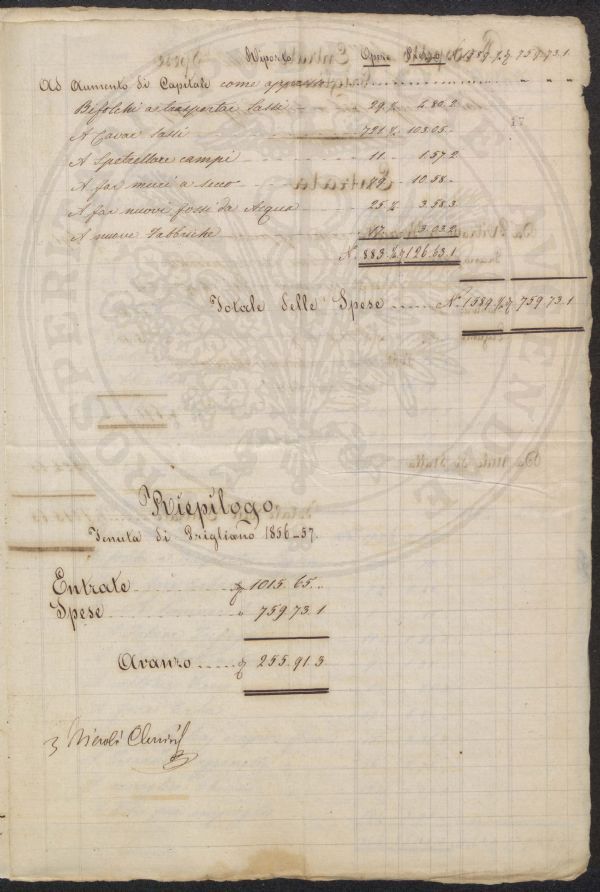 Riporto Opre 1589.½ 759.73.1
Ad Aumento di Capitale come appresso
Bifolchi a trasportar Sassi 29.½ 4.80.2
A Cavar Sassi 721.½ 103.05.
A Spetrellare campi 11 1.57.2
A far muri a secco 79 10.58
A far nuovi fossi da Acqua 25.½ 3.58.3
A nuove Fabbriche 17 3.03.2
N. 883.½ 126.63.1
Totale delle Spese N. 1589.½ 759.73.1
17
Riepilogo
Tenuta di Prigliano 1856-57.
Entrate 1015.65.
Spese " 759.73.1
Avanzo 255.91.3